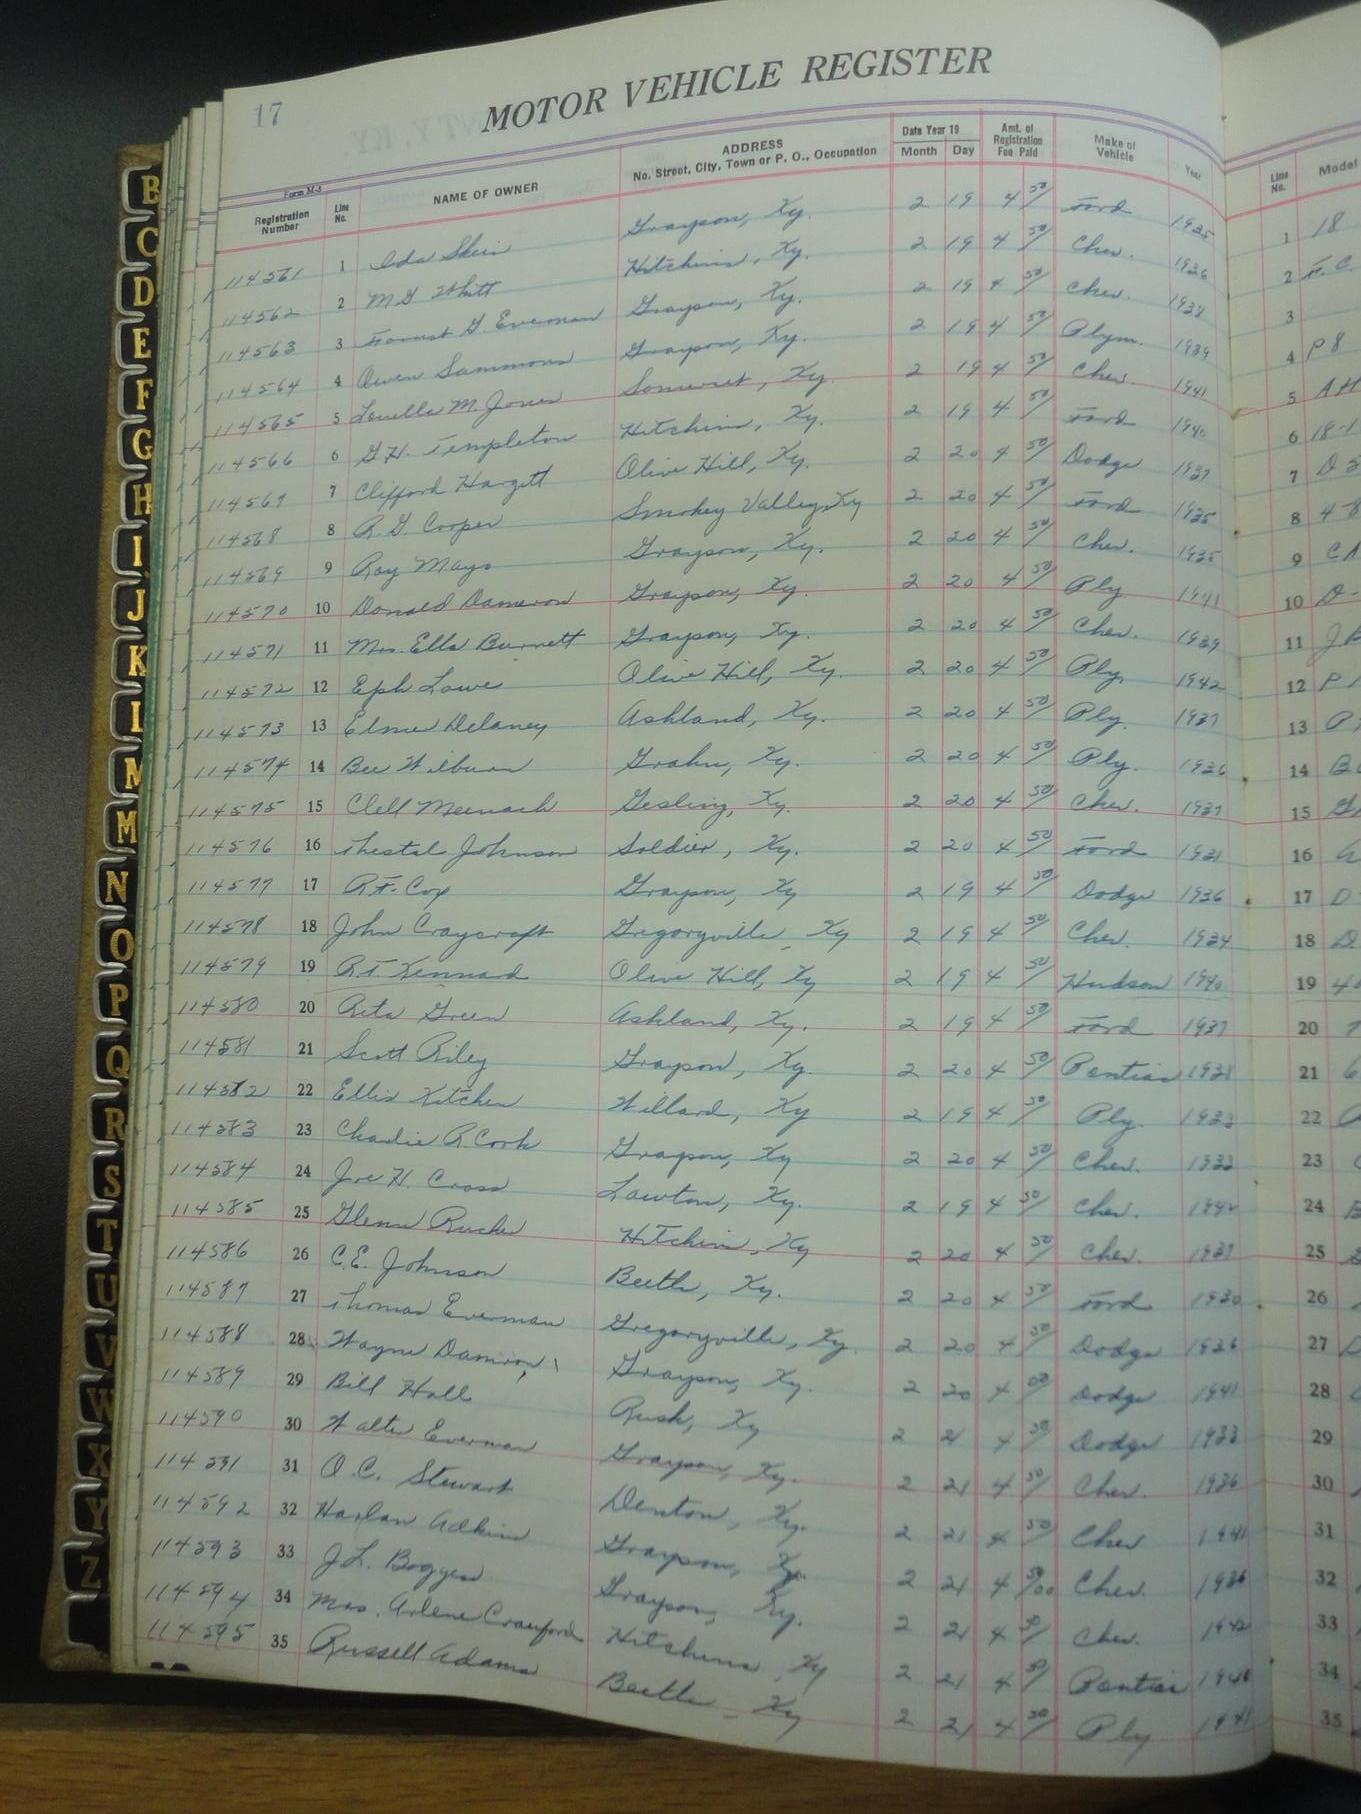 17
MOTOR VEHICLE REGISTER
Form M-5
Registration Number Line No. NAME OF OWNER ADDRESS No. Street, City, Town or P. O., Occupation Date Year 19 Month Day Amt. of Registration Fee Paid Make of Vehicle Year Line No. Model
114561 1 Ida Grayson, Ky. 2 19 4 50/ Ford 1935 1 18
114562 2 M G Whitt Hitchins, Ky. 2 19 4 50/ Chev. 1936 2 F.C.
114563 3 Forrest G Everman Grayson, Ky. 2 19 4 50/ Chev. 1938 3
114564 4 Owen Sammons Grayson, Ky. 2 19 4 50/ Plym. 1939 4 P8
114565 5 Louella M. Jones Somerset, Ky. 2 19 4 50/ Chev. 1941 5 AH
114566 6 G.H. Templeton Hitchins, Ky. 2 19 4 50/ Ford 1940 6 18-1
114567 7 Clifford Hargett Olive Hill, Ky. 2 20 4 50/ Dodge 1937 7 D5
114568 8 R.G. Cooper Smokey Valley, Ky 2 20 4 50/ Ford 1935 8 48
114569 9 Roy Mayo Grayson, Ky. 2 20 4 50/ Chev. 1935 9 CA
114570 10 Donald Dameron Grayson, Ky. 2 20 4 50/ Ply 1941 10 D-
114571 11 Mrs. Ella Burnett Grayson, Ky. 2 20 4 50/ Chev. 1939 11
114572 12 Eph Lowe Olive Hill, Ky. 2 20 4 50/ Ply. 1942 12 P1
114573 13 Elmer Delaney Ashland, Ky. 2 20 4 50/ Ply. 1937 13 P
114574 14 Bee Wilburn Grahn, Ky. 2 20 4 50/ Ply. 1936 14
114575 15 Clell Meenach Gesling, Ky. 2 20 4 50/ Chev. 1937 15 G
114576 16 Thestal Johnson Soldier, Ky. 2 20 4 50/ Ford 1931 16
114577 17 R.F. Cox Grayson, Ky 2 19 4 50/ Dodge 1936 17 D
114578 18 John Craycraft Gregoryville, Ky 2 19 4 50/ Chev. 1934 18 D
114579 19 R.T Kennard Olive Hill, Ky 2 19 4 50/ Hudson 1940 19 40
114580 20 Reta Green Ashland, Ky. 2 19 4 50/ Ford 1937 20 7
114581 21 Scott Riley Grayson, Ky. 2 20 4 50/ Pontiac 1938 21 6
114582 22 Ellis Kitchen Willard, Ky 2 19 4 50/ Ply. 1933 22
114583 23 Charlie R. Cook Grayson, Ky 2 20 4 50/ Chev. 1933 23
114584 24 Joe H. Cross Lawton, Ky. 2 19 4 50/ Chev. 1942 24
114585 25 Glenn Rucker Hitchins, Ky 2 20 4 50/ Chev. 1937 25
114586 26 C.E. Johnson Beetle, Ky. 2 20 4 50/ Ford 1930 26
114587 27 Thomas Everman Gregoryville, Ky. 2 20 4 50/ Dodge 1936 27
114588 28 Wayne Damron Grayson, Ky. 2 20 4 Dodge 1941 28
114589 29 Bill Hall Rush, Ky 2 21 4 50/ Dodge 1933 29
114590 30 Walter Everman Grayson, Ky. 2 21 4 50/ Chev. 1936 30
114591 31 O.C. Stewart Denton, Ky. 2 21 4 50/ Chev 1941 31
114592 32 Harlan Adkins Grayson, Ky. 2 21 4 Chev. 1936 32
114593 33 J.L. Boggess Grayson, Ky. 2 21 4 50/ Chev. 1942 33
114594 34 Mrs. Arlene Crawford Hitchins, Ky 2 21 4 50/ Pontiac 1940 34
114595 35 Russell Adams Beetle, Ky 2 21 4 50/ Ply 1941 35
B
C
D
E
F
G
H
I
J
K
L
M
M
N
O
P
Q
R
S
T
U
V
W
X
Y
Z